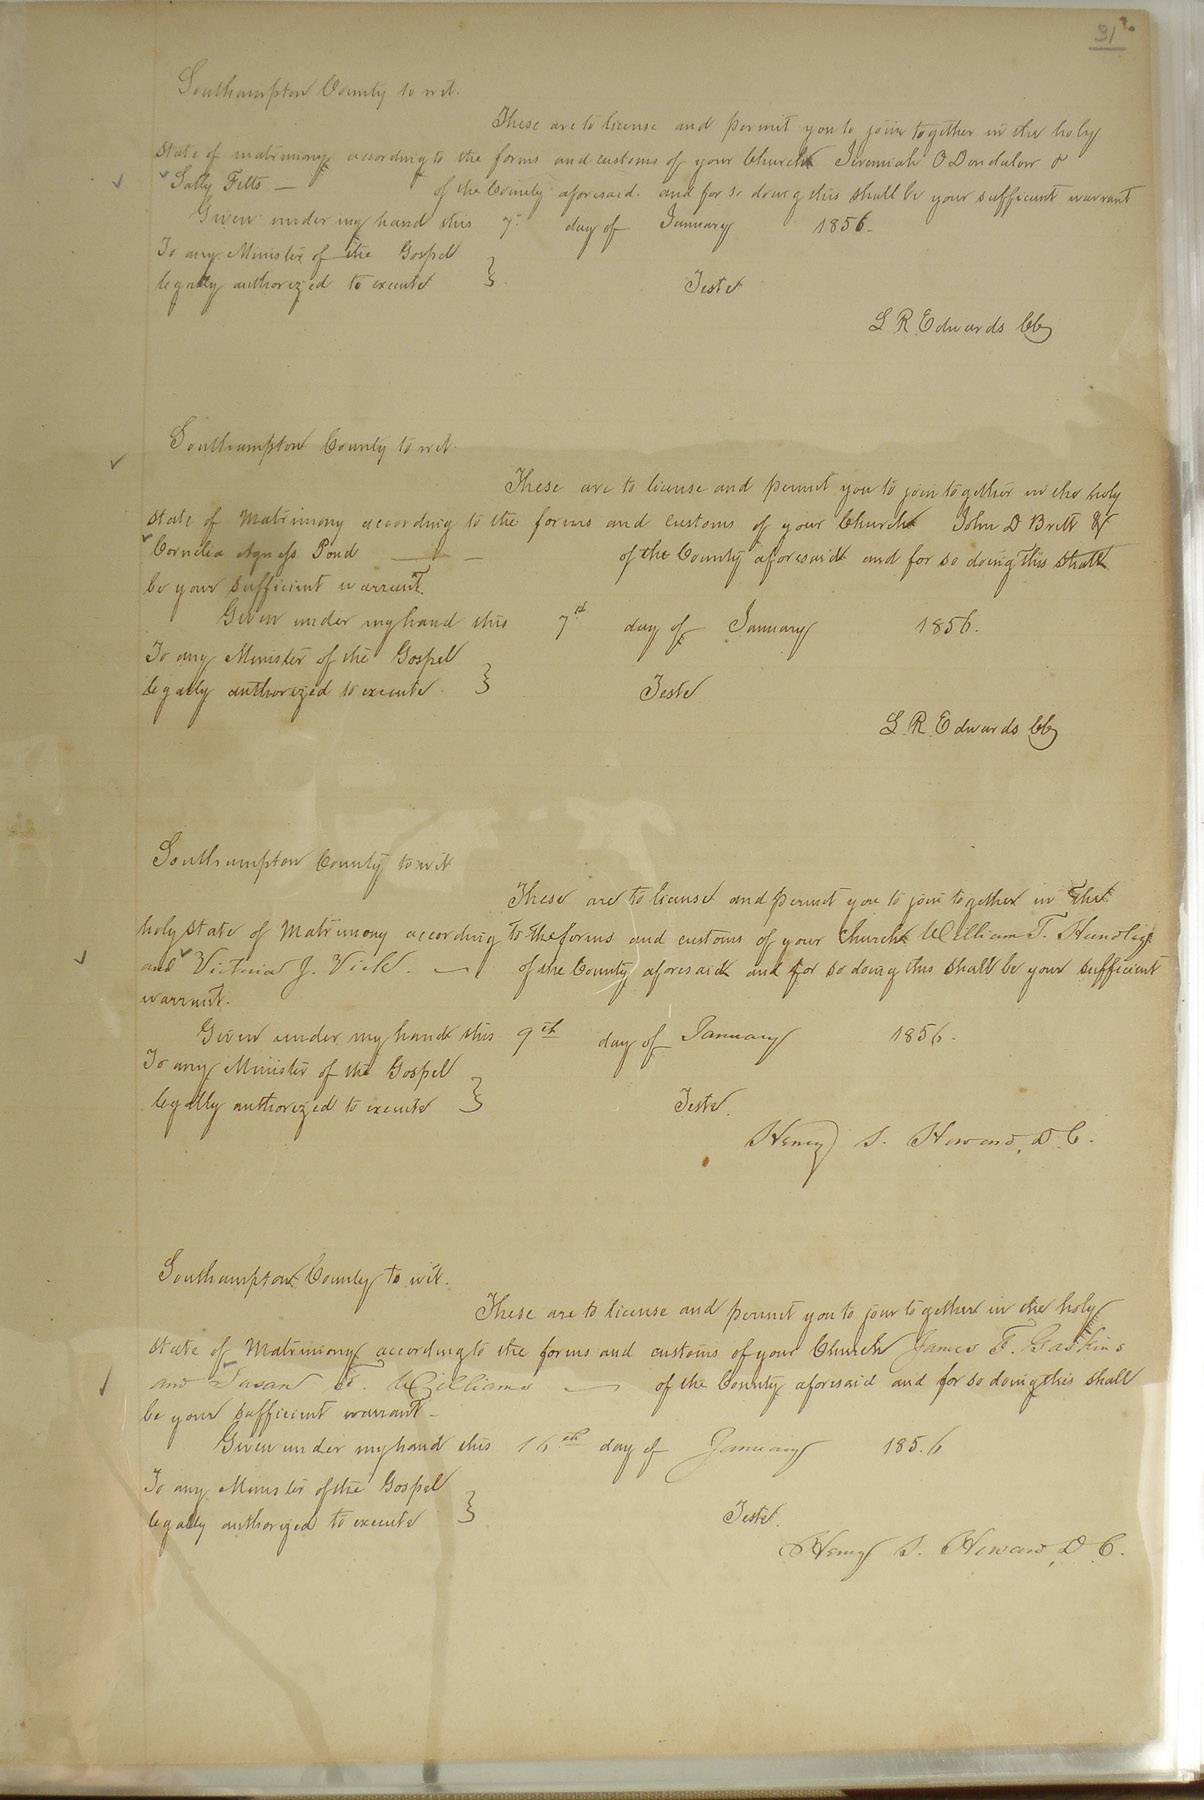 31
Southampton County to wit.
These are to license and permit you to join together in the holy
state of matrimony according to the forms and customs of your Church Jeremiah O Dondalow &
Sally Felts — of the County aforesaid. and for so doing this shall be your sufficient warrant
Given under my hand this 7 day of January 1856.
To any Minister of the Gospel
legally authorized to execute } Teste
L R Edwards
Southampton County to wit.
These are to license and permit you to join together in the holy
state of Matrimony according to the forms and customs of your Church John D Britt &
Cornelia Agness Pond — — of the County aforesaid and for so doing this shall
be your sufficient warrant.
Given under my hand this 7 day of January 1856.
To any Minister of the Gospel
legally authorized to execute } Teste
L. R. Edwards
Southampton County to wit
These are to license and permit you to join together in the
holy state of Matrimony according to the forms and customs of your Church William T. Hundley
and Victoria J. Vick. — of the County aforesaid and for so doing this shall be your sufficient
warrant.
Given under my hand this 9th day of January 1856.
To any Minister of the Gospel
legally authorized to execute } Teste.
Henry S. Howard, D. C.
Southampton County to wit.
These are to license and permit you to join together in the holy
state of Matrimony according to the forms and customs of your Church James F. Gaskins
and Susan F. Williams — of the County aforesaid and for so doing this shall
be your sufficient warrant —
Given under my hand this 16th day of January 185.6
To any Minister of the Gospel
legally authorized to execute } Teste.
Henry S. Howard, D. C.